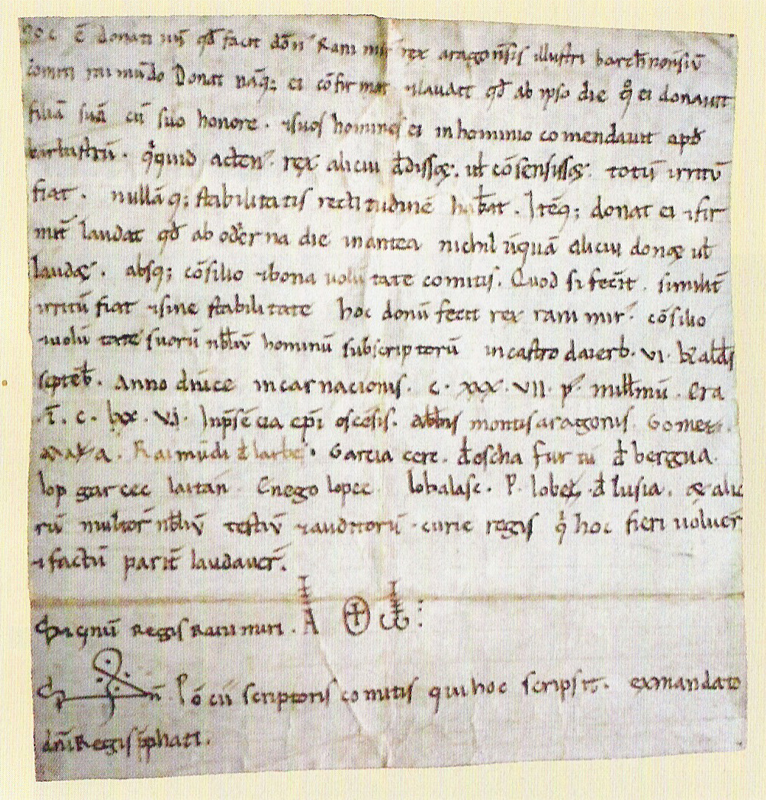 Hoc ē donatiuū qd̄ facit dōn̄ Ranimir rex aragonēsis illustri barch̄nonēsiū
comiti raimūdo Donat nāq; ei cōfirmat ⁊laudat qd̄ ab ipso die q̄ ei donauit
filiā suā cū suo honore. ⁊suos homines ei inhominio comendauit apd̄
barbastrū. q̄quid actenꝰ rex alicui d̄disset. ut̄ cōsensisset. totū irritū
fiat. nullāq; stabilitatis rectitudinē habeat. Iteq; donat ei ⁊fir
mit̄ laudat qd̄ ab ođerna die inantea nichil ūquā alicui donet ut̄
laudet. absq; cōsilio ⁊bona uolūtate comitis. Quod si fecit. similit̄
irritū fiat ⁊sine stabilitate hoc donū fecit rex ranimirꝰ cōsilio
⁊uolūtate suorū nb̄liū hominū subscriptorū incastro daierb. vi. kaldꝭ
septēb. Anno dn̄ice incarnacionis. c. xxx. vii. pꝰ mill̄mū. Era
.T̄. c. lxx. v. Inp̄sēcia ep̄i oscēsis. abb̄is montisaragonis. Gomeci.
Raimūdi đ larbes. Garcia cere. đoscha furtū đ bergua.
lop garcec laitan. Enego lopec. lobalasc. P. lobet. đ lusia. et alio
rū multorū nb̄liū testiū ⁊auditorū curie regis q̄ hoc fieri uoluer̄t
⁊factū parit̄ laudauer̄t.
Signū Regis Ranimiri. A ω
Sign̄. Pōcii scriptoris comitis qui hoc scripsit. exmandato
dn̄i Regis p̄phati.